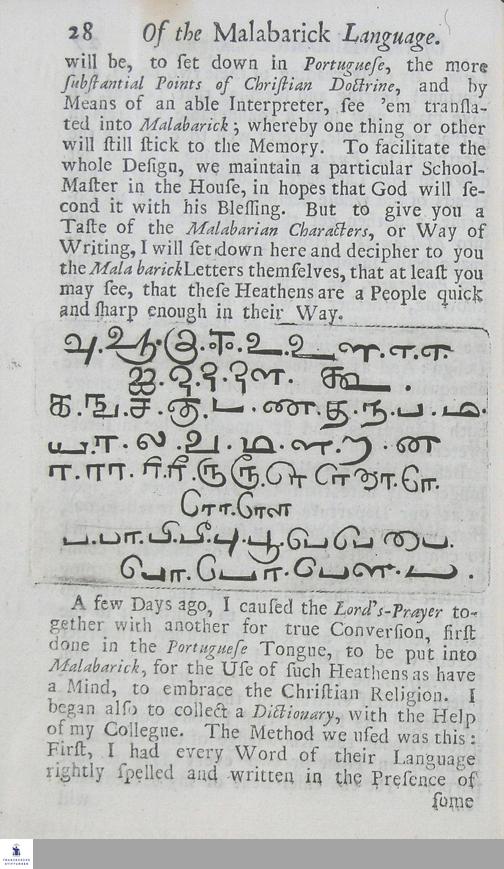 28 Of the Malabarick Language.
will be, to ſet down in Portugueſe, the more
ſubſtantial Points of Chriſtian Doctrine, and by
Means of an able Interpreter, ſee 'em tranſla-
ted into Malabarick; whereby one thing or other
will ſtill ſtick to the Memory. To facilitate the
whole Deſign, we maintain a particular School-
Maſter in the Houſe, in hopes that God will ſe-
cond it with his Bleſſing. But to give you a
Taſte of the Malabarian Characters, or Way of
Writing, I will ſet down here and decipher to you
the Malabarick Letters themſelves, that at leaſt you
may ſee, that theſe Heathens are a People quick
and ſharp enough in their Way.
க.ங.ச.ஞ.ட.ண.த.ந.ப.ம.
ய.ர.ல.வ.ழ.ள.ற.ன
ப.பா.பி.பீ.பு.பூ.பெ பே பை.
பொ.போ.பௌ.ப்.
A few Days ago, I cauſed the Lord's-Prayer to-
gether with another for true Converſion, firſt
done in the Portugueſe Tongue, to be put into
Malabarick, for the Uſe of ſuch Heathens as have
a Mind, to embrace the Chriſtian Religion. I
began alſo to collect a Dictionary, with the Help
of my Collegue. The Method we uſed was this:
Firſt, I had every Word of their Language
rightly ſpelled and written in the Preſence of
ſome
FRANCKESCHE
STIFTUNGEN